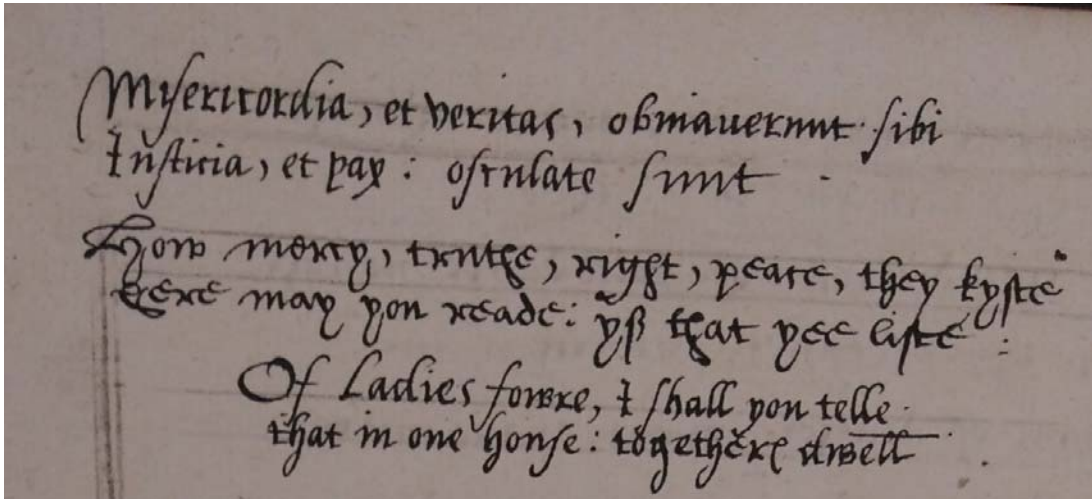 Misericordia, et veritas, obuiauerunt sibi
Iusticia, et pax: osculate sunt
How mercy, truthe, right, peace, they kyste
here may you reade: yff that yee liste:
Of Ladies fowre, I shall you telle.
that in one house: togethere dwell